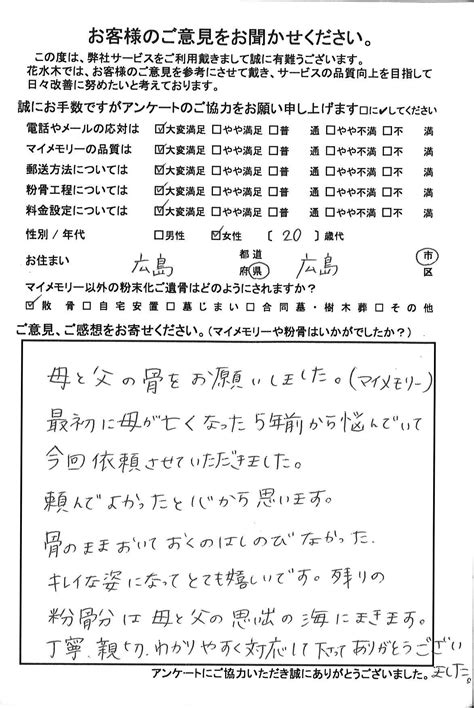 お客様のご意見をお聞かせください。
この度は、弊社サービスをご利用戴きまして誠に有難うございます。
花水木では、お客様のご意見を参考にさせて戴き、サービスの品質向上を目指して
日々改善に努めたいと考えております。
誠にお手数ですがアンケートのご協力をお願い申し上げます□に✓してください
電話やメールの応対は ☑大変満足 □やや満足 □普 通 □やや不満 □不 満
マイメモリーの品質は ☑大変満足 □やや満足 □普 通 □やや不満 □不 満
郵送方法については ☑大変満足 □やや満足 □普 通 □やや不満 □不 満
粉骨工程については ☑大変満足 □やや満足 □普 通 □やや不満 □不 満
料金設定については ☑大変満足 □やや満足 □普 通 □やや不満 □不 満
性別/年代 □男性 ☑女性 〔 20 〕歳代
お住まい 広島 都道府県 広島 市区
マイメモリー以外の粉末化ご遺骨はどのようにされますか?
☑散 骨 □自宅安置 □墓じまい □合同墓・樹木葬 □その他
ご意見、ご感想をお寄せください。(マイメモリーや粉骨はいかがでしたか?)
母と父の骨をお願いしました。(マイメモリー)
最初に母が亡くなった5年前から悩んでいて
今回依頼させていただきました。
頼んでよかったと心から思います。
骨のままおいておくのはしのびなかった.
キレイな姿になってとても嬉しいです。残りの
粉骨分は母と父の思い出の海にまきます。
丁寧、親切、わかりやすく対応して下さってありがとうござい
ました。
アンケートにご協力いただき誠にありがとうございました。